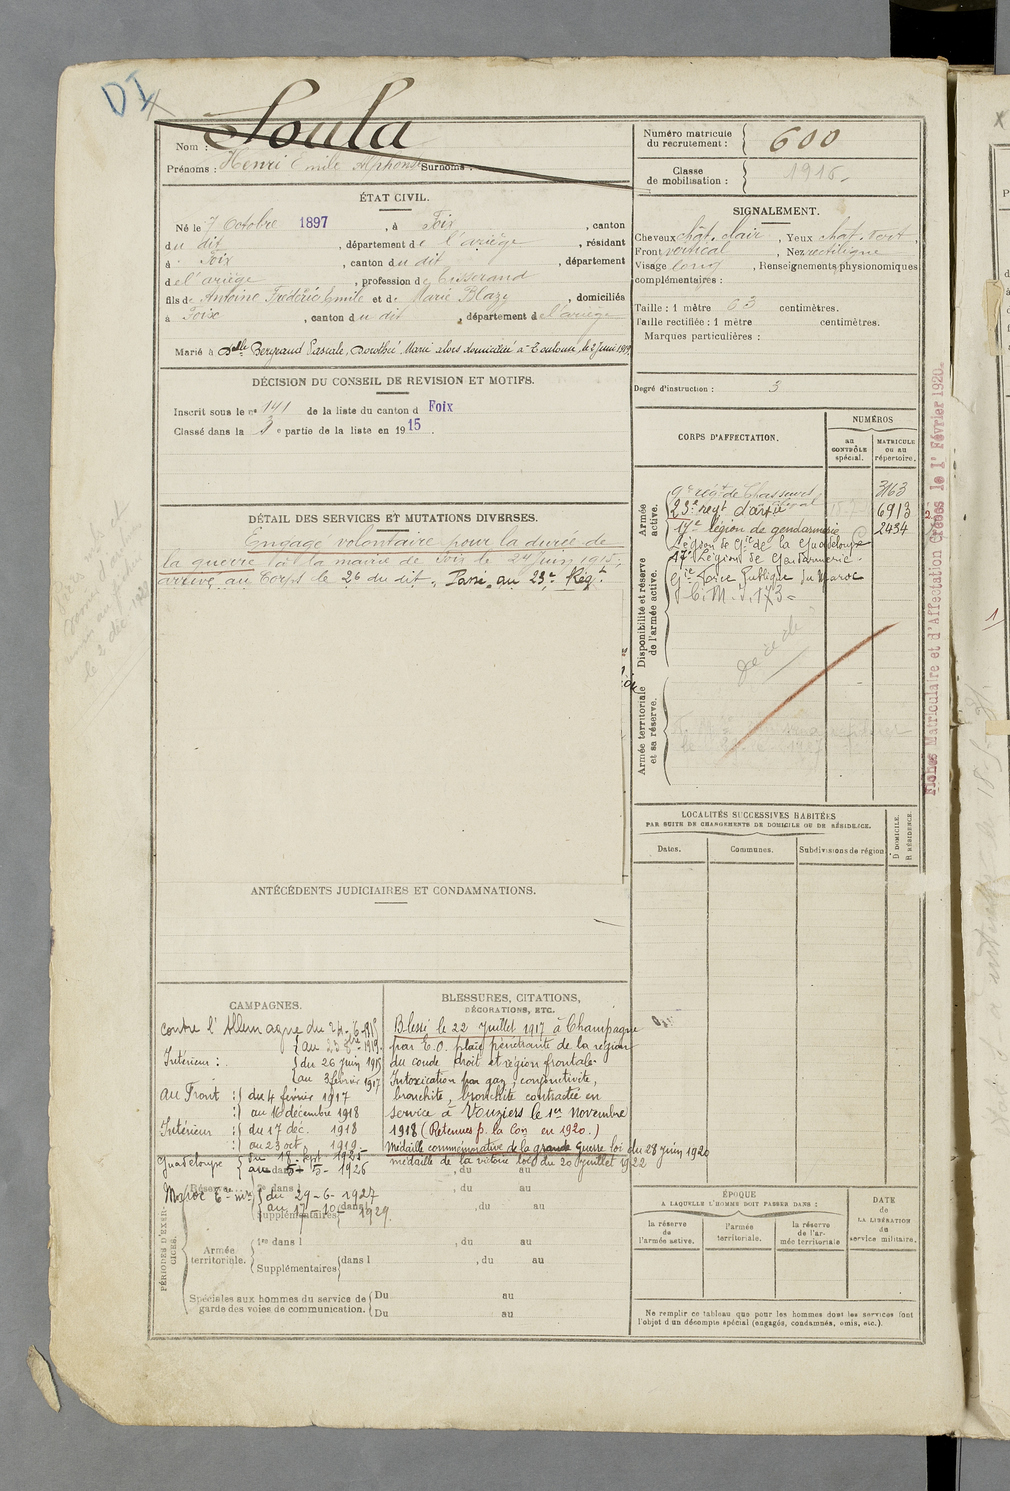 DI
Nom : Soula
Prénoms : Henri Emile Alphonse Surnoms :
Numéro matricule du recrutement : 600
Classe de mobilisation : 1915
ÉTAT CIVIL.
Né le 7 Octobre 1897, à Foix, canton
du dit, département de l'ariège, résidant
à Foix, canton du dit, département
de l'ariège, profession de tisserand
fils de Antoine Frédéric Emile et de Marie Blaze, domiciliés
à Foix, canton du dit, département de l'ariège
Marié à Delle Bergraud Pascale, Dorothée, Marie alors domiciliée à Toulouse, le 2 Juin 1919.
SIGNALEMENT.
Cheveux chât. clair, Yeux chât. vert,
Front vertical, Nez rectiligne
Visage long, Renseignements physionomiques
complémentaires :
Taille : 1 mètre 63 centimètres.
Taille rectifiée : 1 mètre centimètres.
Marques particulières :
Degré d'instruction : 3
DÉCISION DU CONSEIL DE REVISION ET MOTIFS.
Inscrit sous le no 141 de la liste du canton d Foix
Classé dans la 3e partie de la liste en 1915.
DÉTAIL DES SERVICES ET MUTATIONS DIVERSES.
Engagé volontaire pour la durée de
la guerre à la mairie de Foix le 24 Juin 1915,
arrivé au Corps le 26 du dit. Passé au 23e Régt
CORPS D'AFFECTATION.
NUMÉROS
au CONTRÔLE spécial.
MATRICULE OU AU répertoire.
Armée active.
9e régt de Chasseurs 3163
23e régt d'artie 6913
17e légion de gendarmerie 2434
Légion de Gie de la Guadeloupe
17e Légion de Gendarmerie
Gie Force Publique du Maroc
Disponibilité et réserve de l'armée active.
Armée territoriale et sa réserve.
Fiches Matriculaire et d'Affectation Créées le 1er Février 1920.
LOCALITÉS SUCCESSIVES HABITÉES
PAR SUITE DE CHANGEMENTS DE DOMICILE OU DE RÉSIDENCE.
Dates.
Communes.
Subdivisions de région
D DOMICILE.
R RÉSIDENCE.
ANTÉCÉDENTS JUDICIAIRES ET CONDAMNATIONS.
CAMPAGNES.
contre l'Allemagne du 24-6-1915
au 23 8bre 1919
Intérieur : du 26 juin 1915
au 3 février 1917
au Front : du 4 février 1917
au 16 décembre 1918
Intérieur : du 17 déc. 1918
au 23 oct. 1919
Guadeloupe du 18 Sept 1925
au 5-5-1926
Maroc du 29-6-1927
au 17-10-1929.
BLESSURES, CITATIONS,
DÉCORATIONS, ETC.
Blessé le 22 Juillet 1917 à Champagne
par E.O. plaie pénétrante de la région
du coude droit et région frontale
Intoxication par gaz, conjonctivite,
bronchite, bronchite contractée en
service à Vouziers le 1er novembre
1918 (Retenues p. la Con en 1920.)
Médaille commémorative de la grande Guerre loi du 28 juin 1920
médaille de la victoire loi du 20 juillet 1922
PÉRIODES D'EXERCICES.
Réserve
dans l , du au
Supplémentaires dans l , du au
Armée territoriale.
1re dans l , du au
Supplémentaires dans l , du au
Spéciales aux hommes du service de garde des voies de communication.
Du au
Du au
ÉPOQUE
A LAQUELLE L'HOMME DOIT PASSER DANS :
la réserve de l'armée active.
l'armée territoriale.
la réserve de l'armée territoriale
DATE de LA LIBÉRATION du service militaire.
Ne remplir ce tableau que pour les hommes dont les services font
l'objet d'un décompte spécial (engagés, condamnés, omis, etc.).